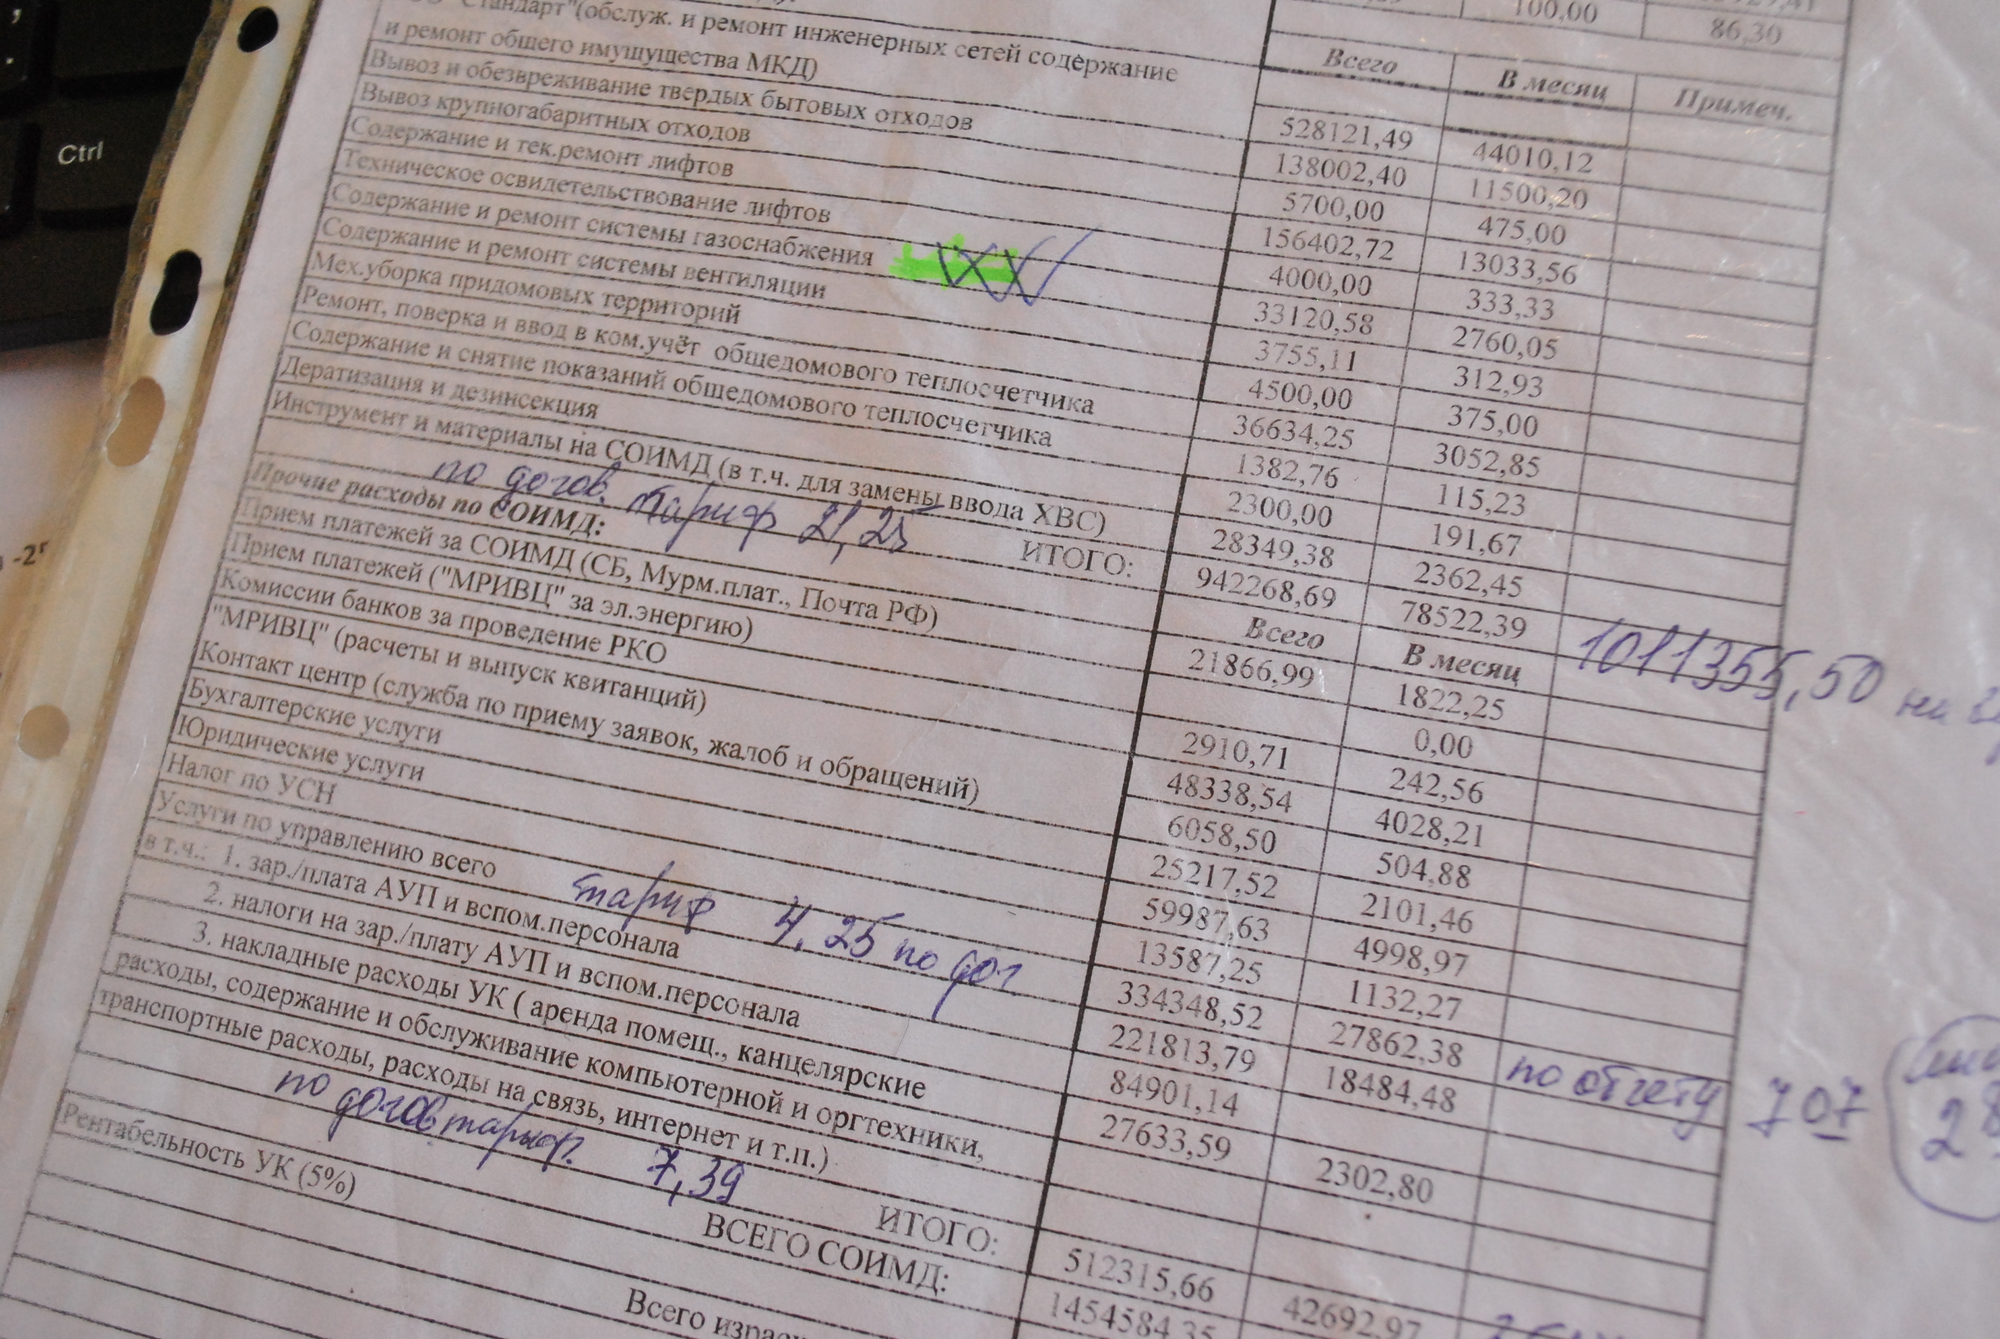 Ctrl
100,00
86,30
"Стандарт"(обслуж. и ремонт инженерных сетей содержание
и ремонт общего имушущества МКД)
Всего В месяц Примеч.
528121,49 44010,12
Вывоз и обезвреживание твердых бытовых отходов 138002,40 11500,20
Вывоз крупногабаритных отходов 5700,00 475,00
Содержание и тек.ремонт лифтов 156402,72 13033,56
Техническое освидетельствование лифтов 4000,00 333,33
Содержание и ремонт системы газоснабжения 33120,58 2760,05
Содержание и ремонт системы вентиляции 3755,11 312,93
Мех.уборка придомовых территорий 4500,00 375,00
Ремонт, поверка и ввод в ком.учёт общедомового теплосчетчика 36634,25 3052,85
Содержание и снятие показаний общедомового теплосчетчика 1382,76 115,23
Дератизация и дезинсекция 2300,00 191,67
Инструмент и материалы на СОИМД (в т.ч. для замены ввода ХВС) 28349,38 2362,45
по догов. тариф 21,25 ИТОГО: 942268,69 78522,39 1011355,50 на
Прочие расходы по СОИМД: Всего В месяц
Прием платежей за СОИМД (СБ, Мурм.плат., Почта РФ) 21866,99 1822,25
Прием платежей ("МРИВЦ" за эл.энергию) 0,00
Комиссии банков за проведение РКО 2910,71 242,56
"МРИВЦ" (расчеты и выпуск квитанций) 48338,54 4028,21
Контакт центр (служба по приему заявок, жалоб и обращений) 6058,50 504,88
Бухгалтерские услуги 25217,52 2101,46
Юридические услуги 59987,63 4998,97
Налог по УСН 13587,25 1132,27
Услуги по управлению всего тариф 4,25 по дог 334348,52 27862,38 по отчету 707
в т.ч.: 1. зар./плата АУП и вспом.персонала 221813,79 18484,48
2. налоги на зар./плату АУП и вспом.персонала 84901,14
3. накладные расходы УК ( аренда помещ., канцелярские 27633,59 2302,80
расходы, содержание и обслуживание компьютерной и оргтехники,
транспортные расходы, расходы на связь, интернет и т.п.)
по догов тариф. 7,39 ИТОГО: 512315,66 42692,97
Рентабельность УК (5%)
ВСЕГО СОИМД: 1454584,35
Всего